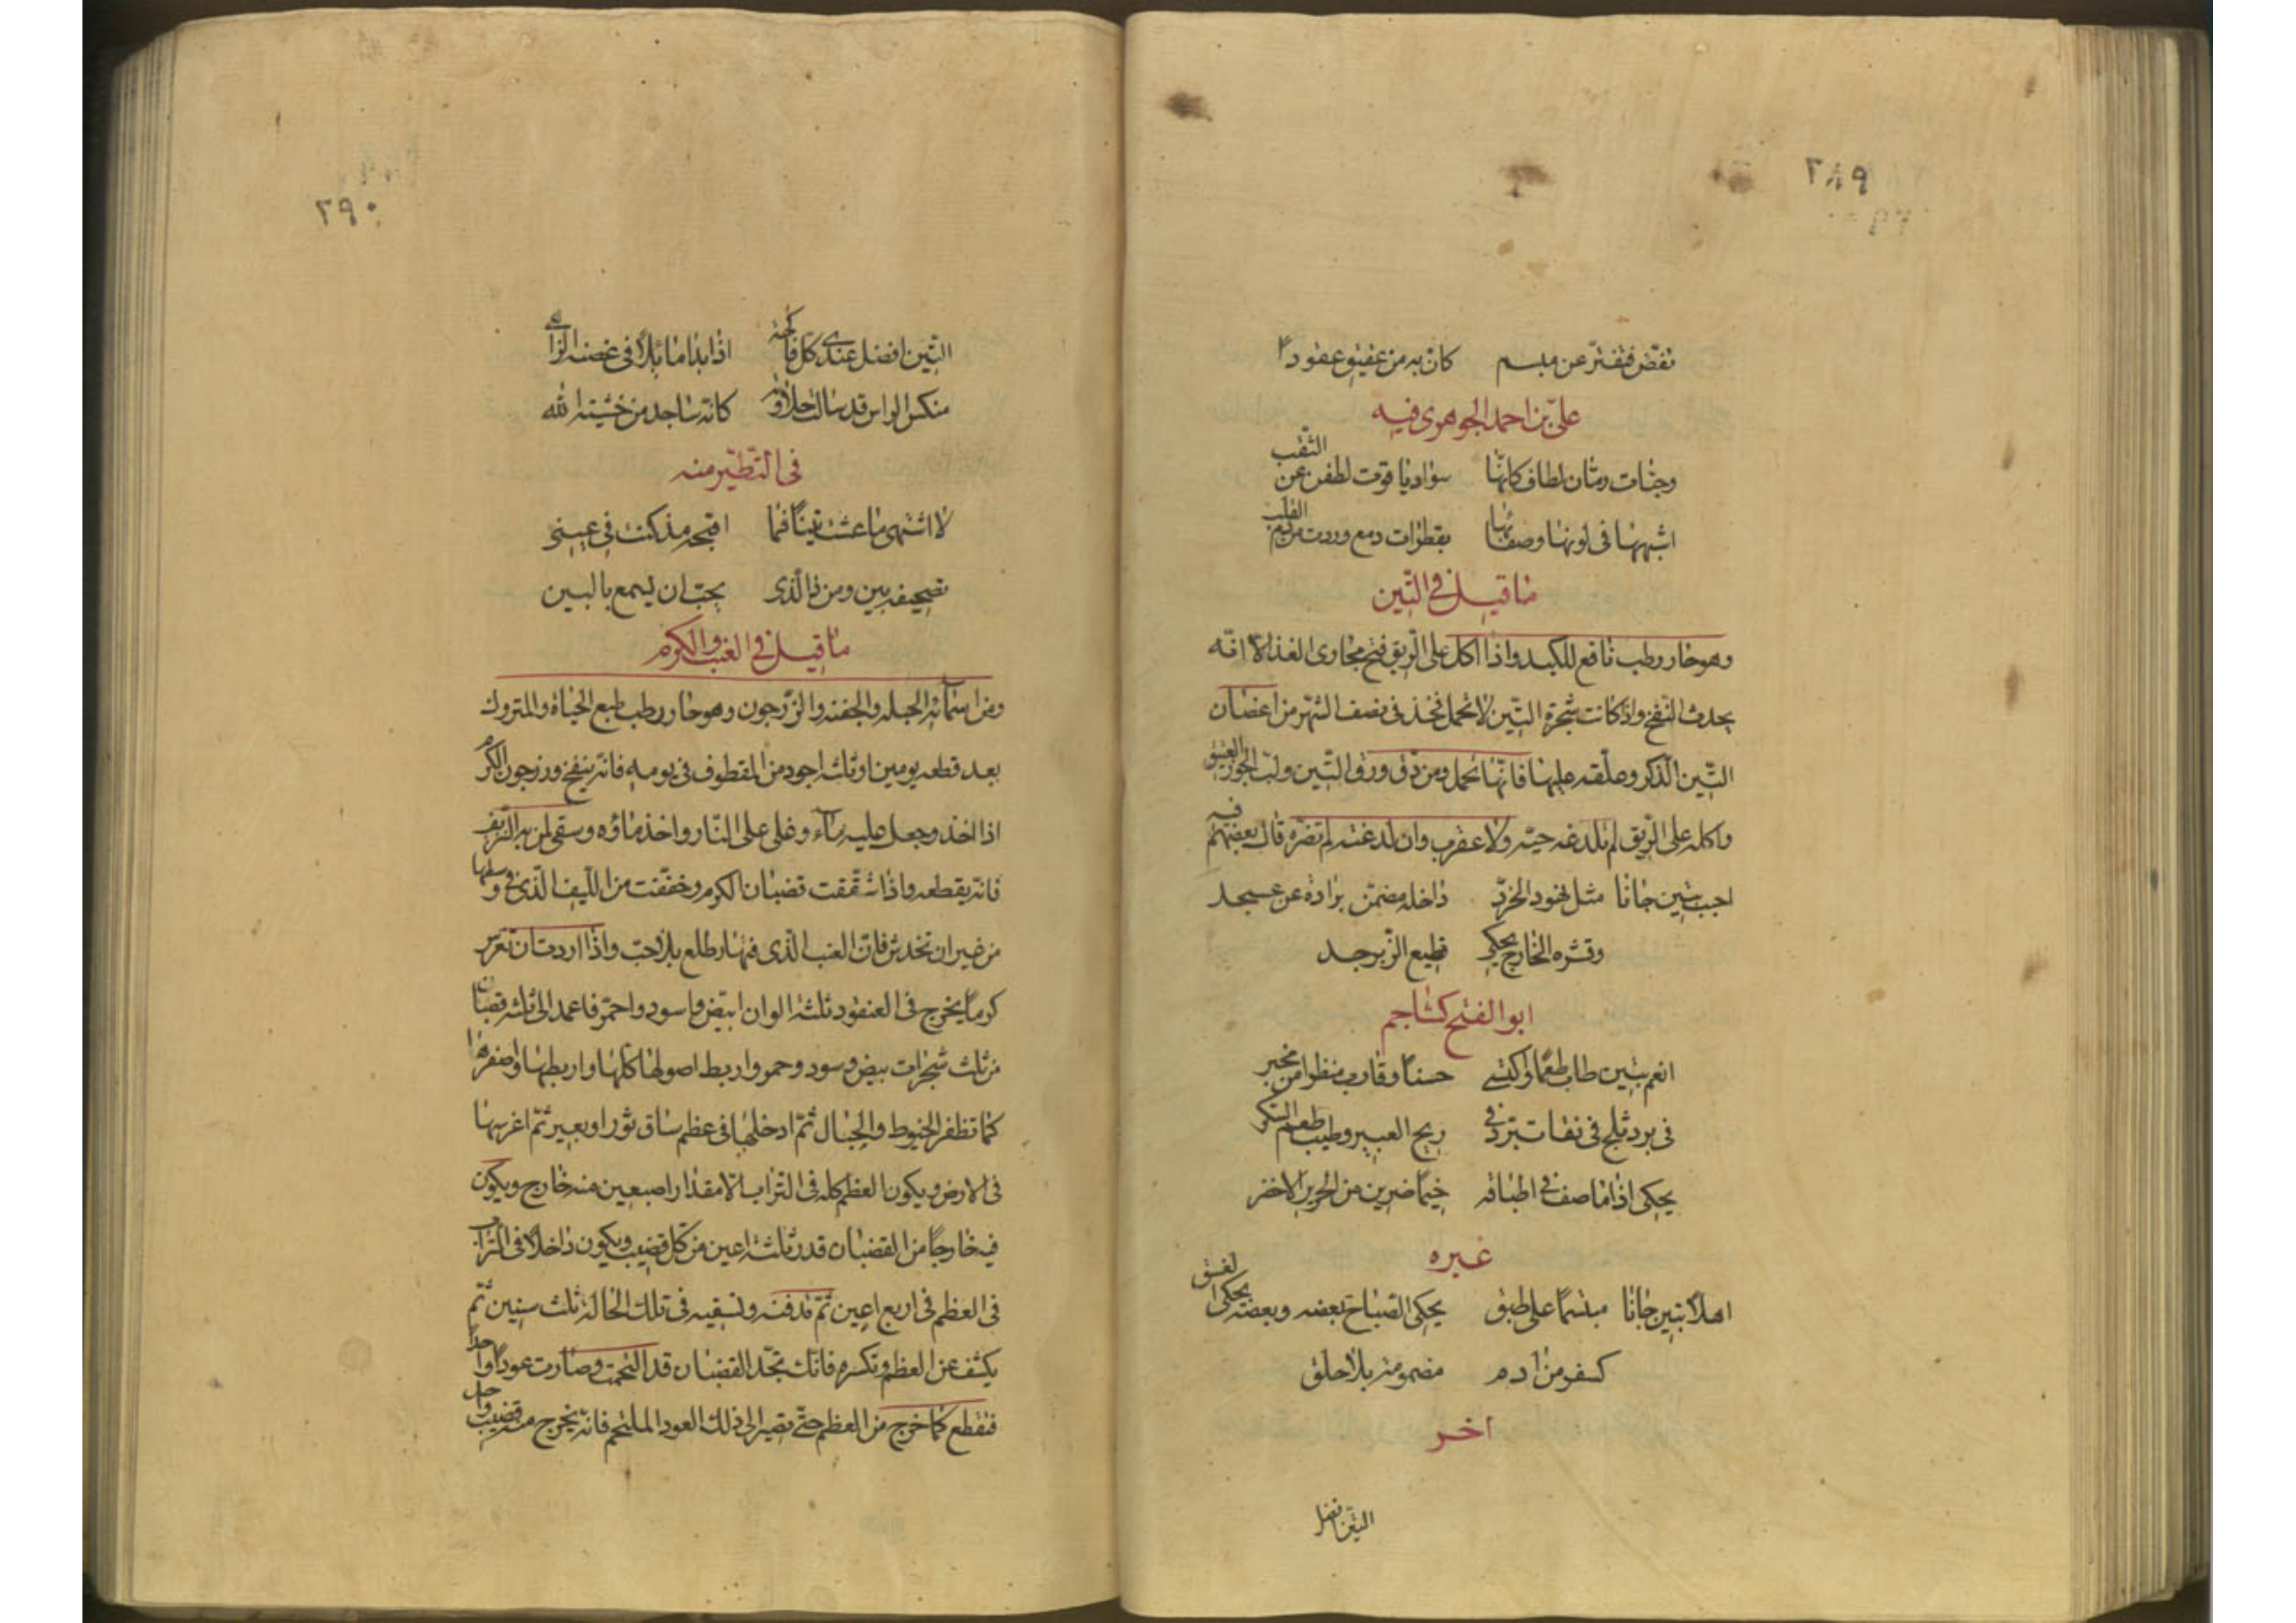 ٢٨٩
تفض فتفتر عن مبسم كان به من عقيق عقودا
علي بن احمد الجوهري فيه
وحبات رمان لطاف كانها سواد ياقوت لطفن عن الثقب
اشبهها في لونها وصفائها بقطرات دمع وردت من دم القلب
ما قيل في التين
وهو حار رطب نافع للكبد واذا اكل على الريق فتح مجاري الغذا الا انه
يحدث النفخ واذ كانت شجرة التين لا تحمل فخذ في نصف الشهر من اغصان
التين الذكر وعلقه عليها فانها تحمل ومن دق ورق التين ولب الجوز العتيق
واكله على الريق لم تلدغه حية ولا عقرب وان لدغته لم تضره قال بعضهم فيه
احبب بتين جانا مثل نهود الخرد داخله مضمن برادة عن عسجد
وقشره الخارج يحكي قطيع الزبرجد
ابو الفتح كشاجم
انعم بتين طاب طعما واكتسى حسنا وقارب منظرا من مخبر
في برد ثلج في نقا تبر وفي ريح العبير وطيب طعم السكر
يحكي اذا ما صف في اطباقه خيما ضربن من الحرير الاخضر
غيره
اهلا بتين جانا مبتسما على طبق يحكي الصباح بعضه وبعضه يحكي الغسق
كسفر من ادم مضمومة بلا حلق
اخر
التين افضل
٢٩٠
التين افضل عندي كل فاكهة اذا بدا مائلا في غصنه الزاهي
منكس الراس قد سالت حلاوته كانه ساجد من خشية الله
في التطير منه
لا اشتهي ما عشت تينا فما اقبحه مذ كنت في عيني
تصحيفه بين ومن ذا الذي يحب ان يسمع بالبين
ما قيل في العنب والكرم
ومن اسمائه الحبله والجفنه والزرجون وهو حار رطب طبع الحياة والمتروك
بعد قطعه يومين او ثلثه اجود من المقطوف في يومه فانه ينفخ وزرجون الكرم
اذا اخذ وجعل عليه ماء وغلى على النار واخذ ماؤه وسقي لمن به النزيف
فانه يقطعه واذا شققت قضبان الكرم وخففت من الليف الذي في وسطها
من غير ان تخدش فان العنب الذي فيها يطلع بلا حب واذا اردت ان تغرس
كرما يخرج في العنقود ثلثة الوان ابيض واسود واحمر فاعمد الى ثلثه قضبان
من ثلث شجرات بيض وسود وحمر واربط اصولها كلها واربطها واضفرها
كما تظفر الخيوط والحبال ثم ادخلها في عظم ساق ثور او بعير ثم اغرسها
في الارض ويكون العظم كله في التراب الا مقدار اصبعين منه خارج ويكون
فيه خارجا من القضبان قدر ثلثة اعين من كل قضيب ويكون داخلا في التراب
في العظم في اربع اعين ثم تدفنه وتسقيه في تلك الحالة ثلث سنين ثم
يكشف عن العظم وتكسره فانك تجد القضبان قد التحمت وصارت عودا واحدا
فتقطع كلما خرج من العظم حتى تصير الى ذلك العود الملتحم فانه يخرج منه قضيب واحد